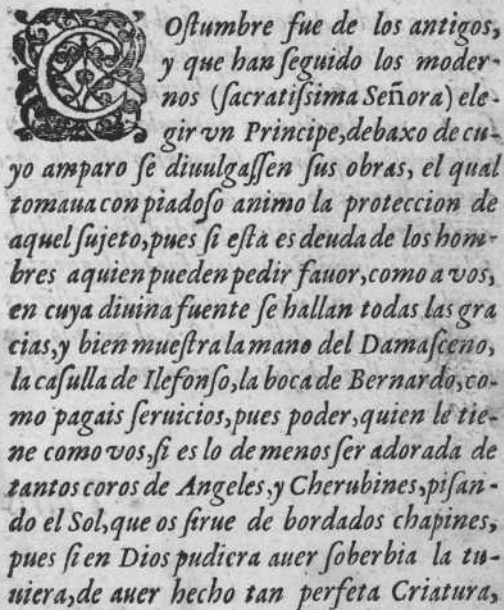 COſtumbre fue de los antigos,
y que han ſeguido los moder-
nos (ſacratiſsima Señora) ele-
gir vn Principe,debaxo de cu-
yo amparo ſe diuulgaſſen ſus obras, el qual
tomaua con piadoſo animo la proteccion de
aquel ſujeto,pues ſi eſta es deuda de los hom-
bres a quien pueden pedir fauor,como a vos,
en cuya diuina fuente ſe hallan todas las gra
cias,y bien mueſtra la mano del Damaſceno,
la caſulla de Ilefonſo,la boca de Bernardo,co-
mo pagais ſeruicios,pues poder,quien le tie-
ne como vos,ſi es lo de menos ſer adorada de
tantos coros de Angeles,y Cherubines,piſan-
do el Sol,que os ſirue de bordados chapines,
pues ſi en Dios pudiera auer ſoberbia la tu-
uiera,de auer hecho tan perfeta Criatura,